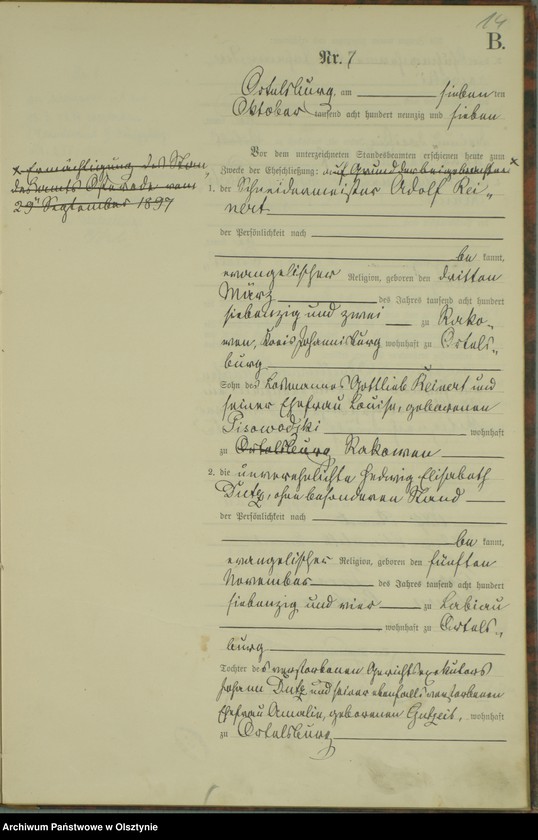 14
B.
Nr. 7
Ortelsburg, am sieben ten
Oktober tausend acht hundert neunzig und sieben
Vor dem unterzeichneten Standesbeamten erschienen heute zum
Zwecke der Eheschließung: auf Grund der beigebrachten x
x Ermächtigung des Stan
desamts Osterode vom
29ten September 1897
1. der Schneidermeister Adolf Rei-
nert
der Persönlichkeit nach
be kannt,
evangelischer Religion, geboren den dritten
März des Jahres tausend acht hundert
siebenzig und zwei zu Rako-
wen, Kreis Johannisburg wohnhaft zu Ortels-
burg
Sohn des Losmannes Gottlieb Reinert und
seiner Ehefrau Louise, geborenen
Pisowodzki wohnhaft
zu Ortelsburg Rakowen
2. die unverehelichte Hedwig Elisabeth
Dutz, ohne besonderen Stand
der Persönlichkeit nach
be kannt,
evangelischer Religion, geboren den fünften
November des Jahres tausend acht hundert
siebenzig und vier zu Labiau
wohnhaft zu Ortels-
burg
Tochter des verstorbenen Gerichtsexekutors
Johann Dutz und seiner ebenfalls verstorbenen
Ehefrau Amalie, geborenen Gutzeit, wohnhaft
zu Ortelsburg
Archiwum Państwowe w Olsztynie